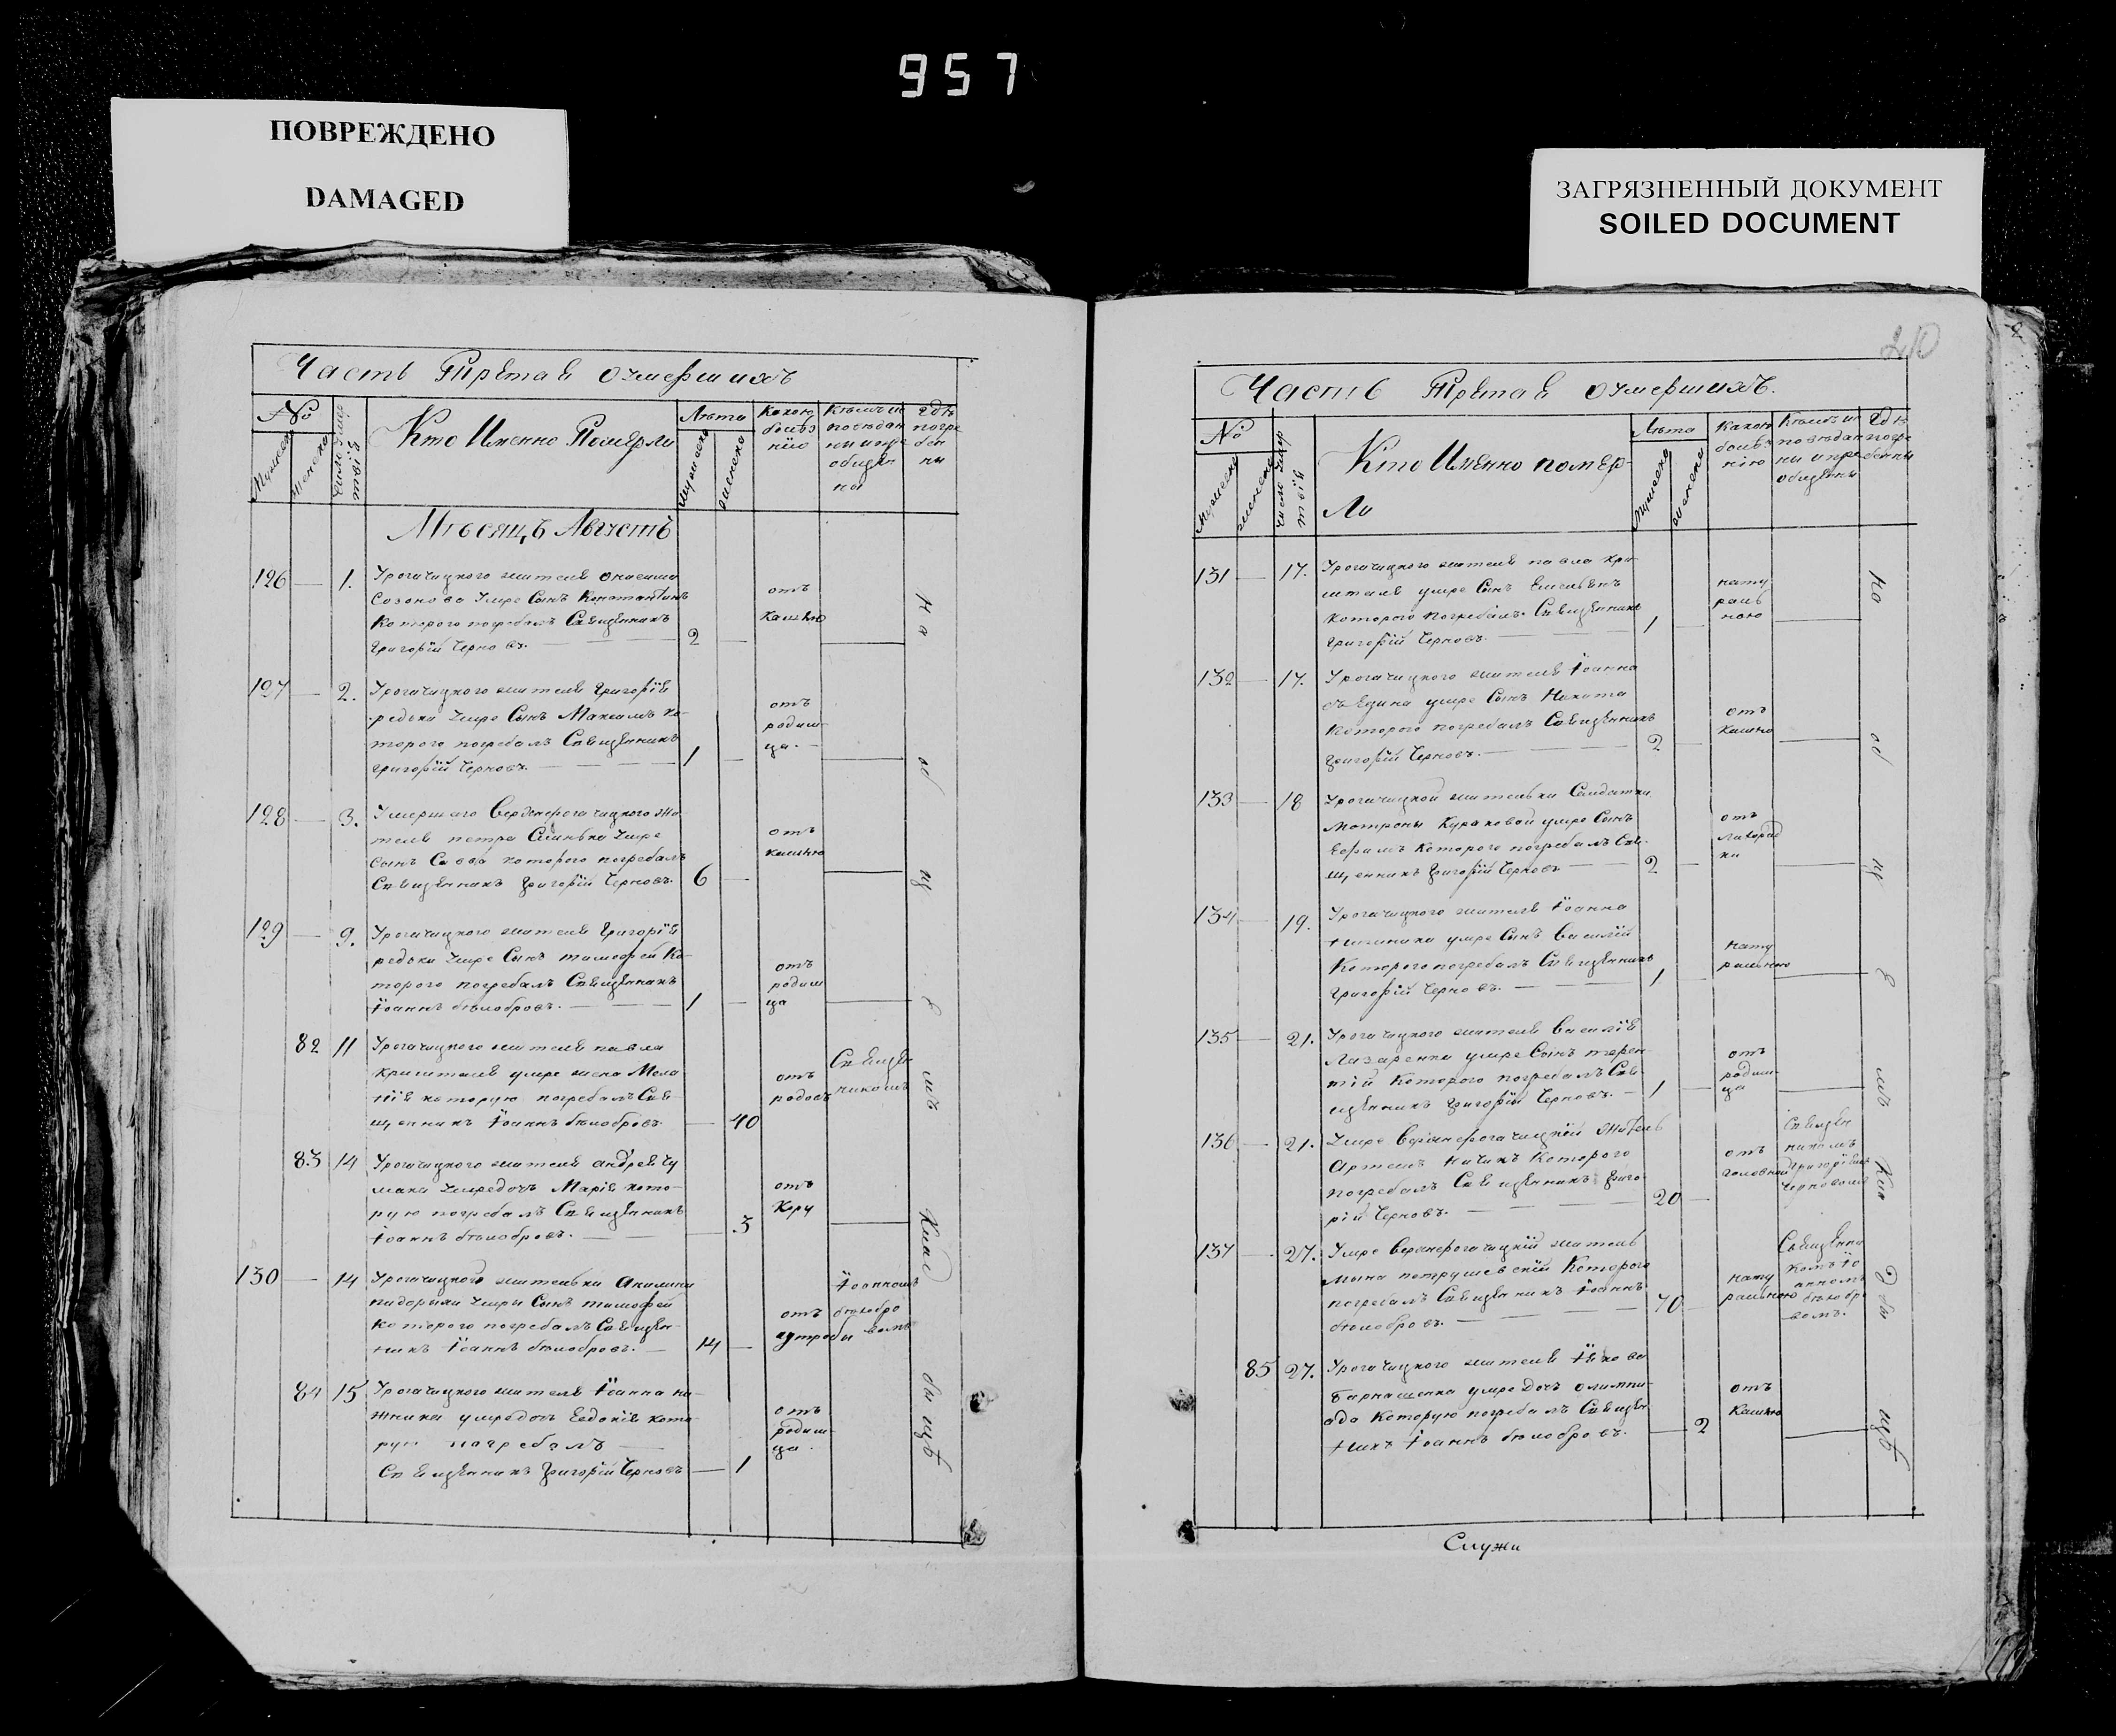 957
ПОВРЕЖДЕНО
DAMAGED
ЗАГРЯЗНЕННЫЙ ДОКУМЕНТ
SOILED DOCUMENT
Часть Третая Оумершихъ
№
Мужеска
женска
Число умертвія
Кто Именно Померли
Лѣта
мужеска
женска
Какою болѣзнію
Кѣмъ исповѣданы и пріобщены
гдѣ погребены
Мѣсяцъ Августъ
126 — 1. Урогачицкого жителя Онисима
Созонова Умре Сынъ Константинъ
Которого погребалъ Священникъ
Григорій Черновъ. 2 —
отъ
кашлю
127 — 2. Урогачицкого жителя Григорія
редьки Умре Сынъ Максимъ ко-
торого погребалъ Священникъ
Григорій Черновъ. 1 —
отъ
родим-
ца.
128 — 3. Умершаго Верхнерогачицкого Жи-
теля петра Слинька Умре
Сынъ Савва которого погребалъ
Священникъ Григорій Черновъ. 6 —
отъ
кашлю
129 — 9. Урогачицкого жителя Григорія
редьки Умре Сынъ тимофей Ко-
торого погребалъ Священникъ
Іоаннъ бѣлобровъ. 1 —
отъ
родим
ца
82 11 Урогачицкого жителя павла
кришталя умре жена Мела-
нія которую погребалъ Свя-
щенникъ Іоаннъ бѣлобровъ. — 40
отъ
родовъ
Священ
никомъ
83 14 Урогачицкого жителя андрея Чу
мака Умре дочь Марія кото-
рую погребалъ Священникъ
Іоаннъ бѣлобровъ. — 3
отъ
Кору
130 — 14 Урогачицкой жительки Акилины
Сынъ тимофей
Которого погребалъ Священ-
никъ Іоаннъ бѣлобровъ. 14 —
отъ
Іоанномъ
бѣлобро
вомъ
84 15 Урогачицкого жителя Іоанна ни-
жника умре дочь Евдокія кото-
рую погребалъ
Священникъ Григорій Черновъ — 1
отъ
родим-
ца.
На об ще мъ Клад би щѣ
210
Часть Третая Оумершихъ.
№
Мужеска
женска
число умертвія
Кто Именно помер-
ли
Лѣта
Мужеска
женска
Какою болѣзнію
Кѣмъ исповѣданы и пріобщены
гдѣ погребены
131 — 17. Урогачицкого жителя павла кри-
шталя умре Сынъ Емельянъ
которого погребалъ Священникъ
Григорій Черновъ. 1 —
нату
раль
ною
132 — 17. Урогачицкого жителя Іоанна
умре Сынъ Никита
Которого погребалъ Священникъ
Григорій Черновъ. 2 —
отъ
кашлю
133 — 18 Урогачицкой жительки Салдатки
Мотроны Кураковой умре Сынъ
Ефримъ Которого погребалъ Свя-
щенникъ Григорій Черновъ 2 —
отъ
лихорад
ки
134 — 19. Урогачицкого жителя Іоанна
умре Сынъ Василій
Которого погребалъ Священникъ
Григорій Черновъ. 1 —
нату
ральною
135 — 21. Урогачицкого жителя Василія
Лазаренка умре Сынъ терен-
тій Которого погребалъ Свя-
щенникъ Григорій Черновъ. 1 —
отъ
родим-
ца
136 — 21. Умре Верхнерогачицкій Житель
Артемъ Которого
погребалъ Священникъ Григо-
рій Черновъ. 20 —
отъ
головной
Священ
никомъ
Григоріемъ
Черновомъ
137 — 27. Умре Верхнерогачицкій житель
Мина петрушевскій Которого
погребалъ Священникъ Іоаннъ
бѣлобровъ. 70 —
нату
ральною
Священни
комъ Іо
анномъ
бѣлобро
вомъ.
85 27. Урогачицкого жителя Якова
Барнашенка умре Дочь олимпи-
ада Которую погребалъ Священ-
никъ Іоаннъ бѣлобровъ. — 2
отъ
Кашлю
На об ще мъ Кла д би щѣ
Служи